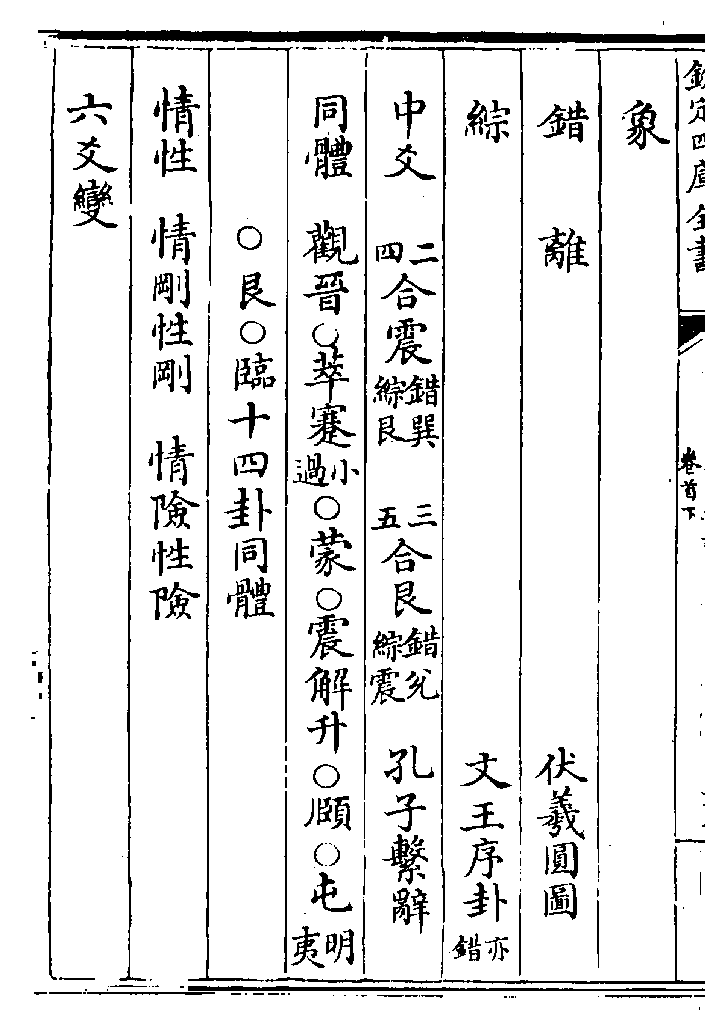 欽定四庫全書
卷首下
象
錯 離 伏羲圓圖
綜 文王序卦亦錯
中爻 二四合震錯巽綜艮 三五合艮錯兌綜震 孔子繫辭
同體 觀晉○萃蹇小過○蒙○震解升○頤○屯明夷
○艮○臨十四卦同體
情性 情剛性剛 情險性險
六爻變